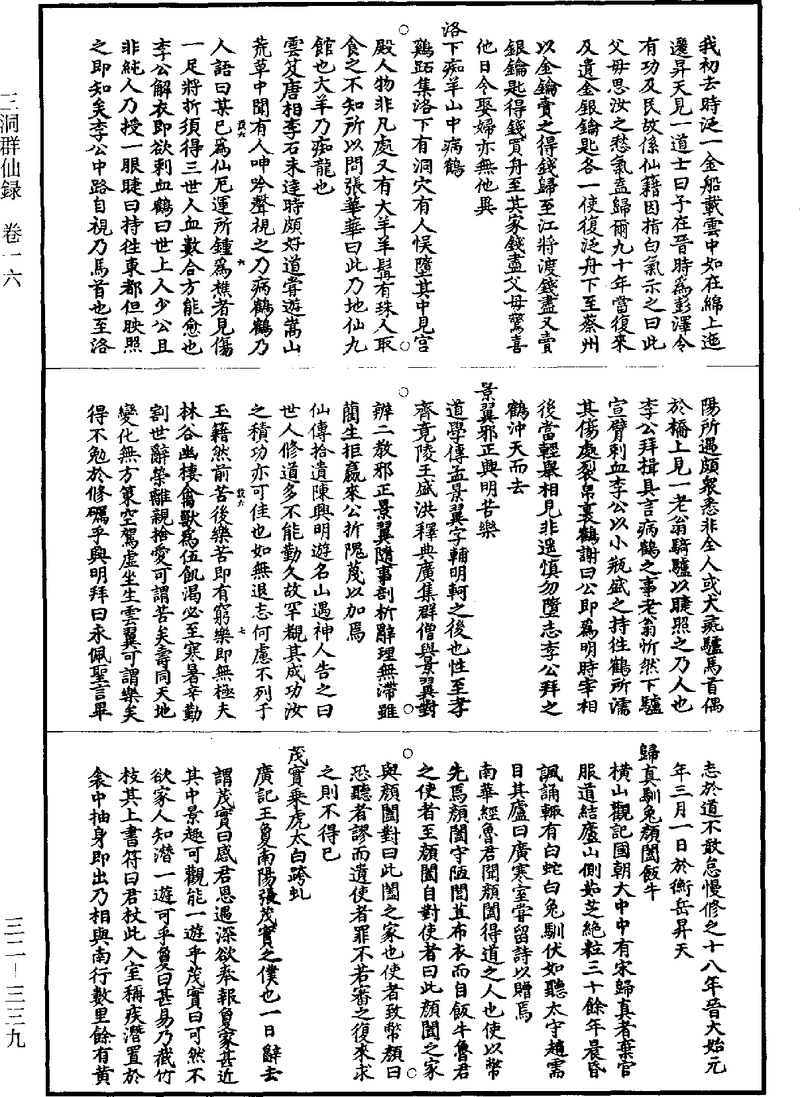 我初去時泛一金船載雲中如在綿上迤
邐昇天見一道士曰子在晉時為彭澤令
有功及民故係仙籍因指白氣示之曰此
父母思汝之愁氣蓋歸爾九十年當復來
及遺金銀鑰匙各一使復泛舟下至蔡州
以金鑰賣之得錢歸至江將渡錢盡又賣
銀鑰匙得錢買舟至其家錢盡父母驚喜
他日令娶婦亦無他異
洛下痴羊山中病鶴
鷄跖集洛下有洞穴有人悮墮其中見宮
殿人物非凡處又有大羊羊髯有珠人取
食之不知所以問張華華曰此乃地仙九
館也大羊乃痴龍也
雲笈唐相李石未達時頗好道嘗遊嵩山
荒草中聞有人呻吟聲視之乃病鶴鶴乃
人語曰某已為仙厄運所鍾為樵者見傷
一足將折須得三世人血數合方能愈也
李公解衣即欲刺血鶴曰世上人少公且
非純人乃授一眼睫曰持往東都但映照
之即知矣李公中路自視乃馬首也至洛
陽所遇頗衆悉非全人或犬彘驢馬首偶
於橋上見一老翁騎驢以睫照之乃人也
李公拜揖具言病鶴之事老翁忻然下驢
宣臂刺血李公以小瓶盛之持往鶴所濡
其傷處裂帛裹鶴謝曰公即為明時宰相
後當輕舉相見非遥慎勿墮志李公拜之
鶴沖天而去
景翼邪正興明苦樂
道學傳孟景翼字輔明軻之後也性至孝
齊竟陵王盛洪釋典廣集群僧與景翼對
辨二教邪正景翼隨事剖析辭理無滯雖
藺生拒嬴來公折隗蔑以加焉
仙傳拾遺陳興明遊名山遇神人告之曰
世人修道多不能勤久故罕覩其成功汝
之積功亦可佳也如無退志何慮不列于
玉籍然前苦後樂苦即有窮樂即無極夫
林谷幽棲禽獸為伍飢渴必至寒暑辛勤
割世辭榮離親捨愛可謂苦矣壽同天地
變化無方策空駕虛坐生雲翼可謂樂矣
得不勉於修礪乎興明拜曰永佩聖言畢
志於道不敢怠慢修之十八年晉大始元
年三月一日於衡岳昇天
歸真馴兔顏闔飯牛
橫山觀記國朝大中中有宋歸真者棄官
服道結廬山側茹芝絶粒三十餘年晨昏
諷誦輙有白蛇白兔馴伏如聽太守趙需
目其廬曰廣寒室嘗留詩以贈焉
南華經魯君聞顏闔得道之人也使以幣
先焉顏闔守陋閭苴布衣而自飯牛魯君
之使者至顏闔自對使者曰此顏闔之家
與顏闔對曰此闔之家也使者致幣顏曰
恐聽者謬而遺使者罪不若審之復來求
之則不得已
茂實乘虎太白跨虬
廣記王夐南陽張茂實之僕也一日辭去
謂茂實曰感君恩遇深欲奉報夐家甚近
其中景趣可觀能一遊乎茂實曰可然不
欲家人知潛一遊可乎夐曰甚易乃截竹
杖其上書符曰君杖此入室稱疾潛置於
衾中抽身即出乃相與南行數里餘有黄
三洞群仙録 卷一六
三二—三三九